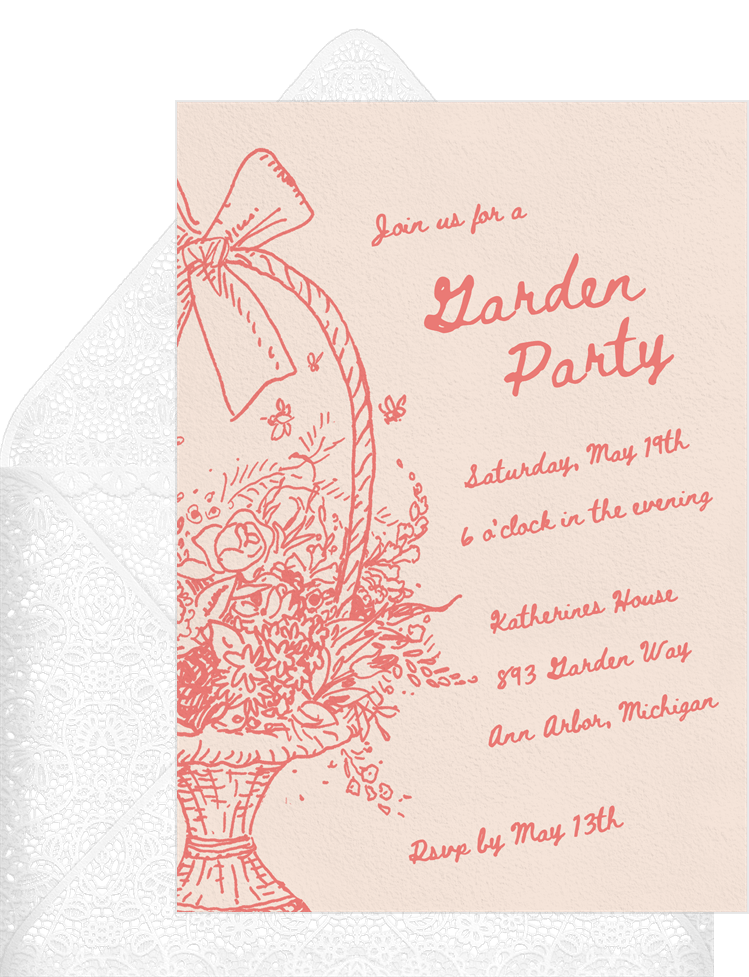 Join us for a
Garden
Party
Saturday, May 19th
6 o'clock in the evening
Katherines House
893 Garden Way
Ann Arbor, Michigan
Rsvp by May 13th